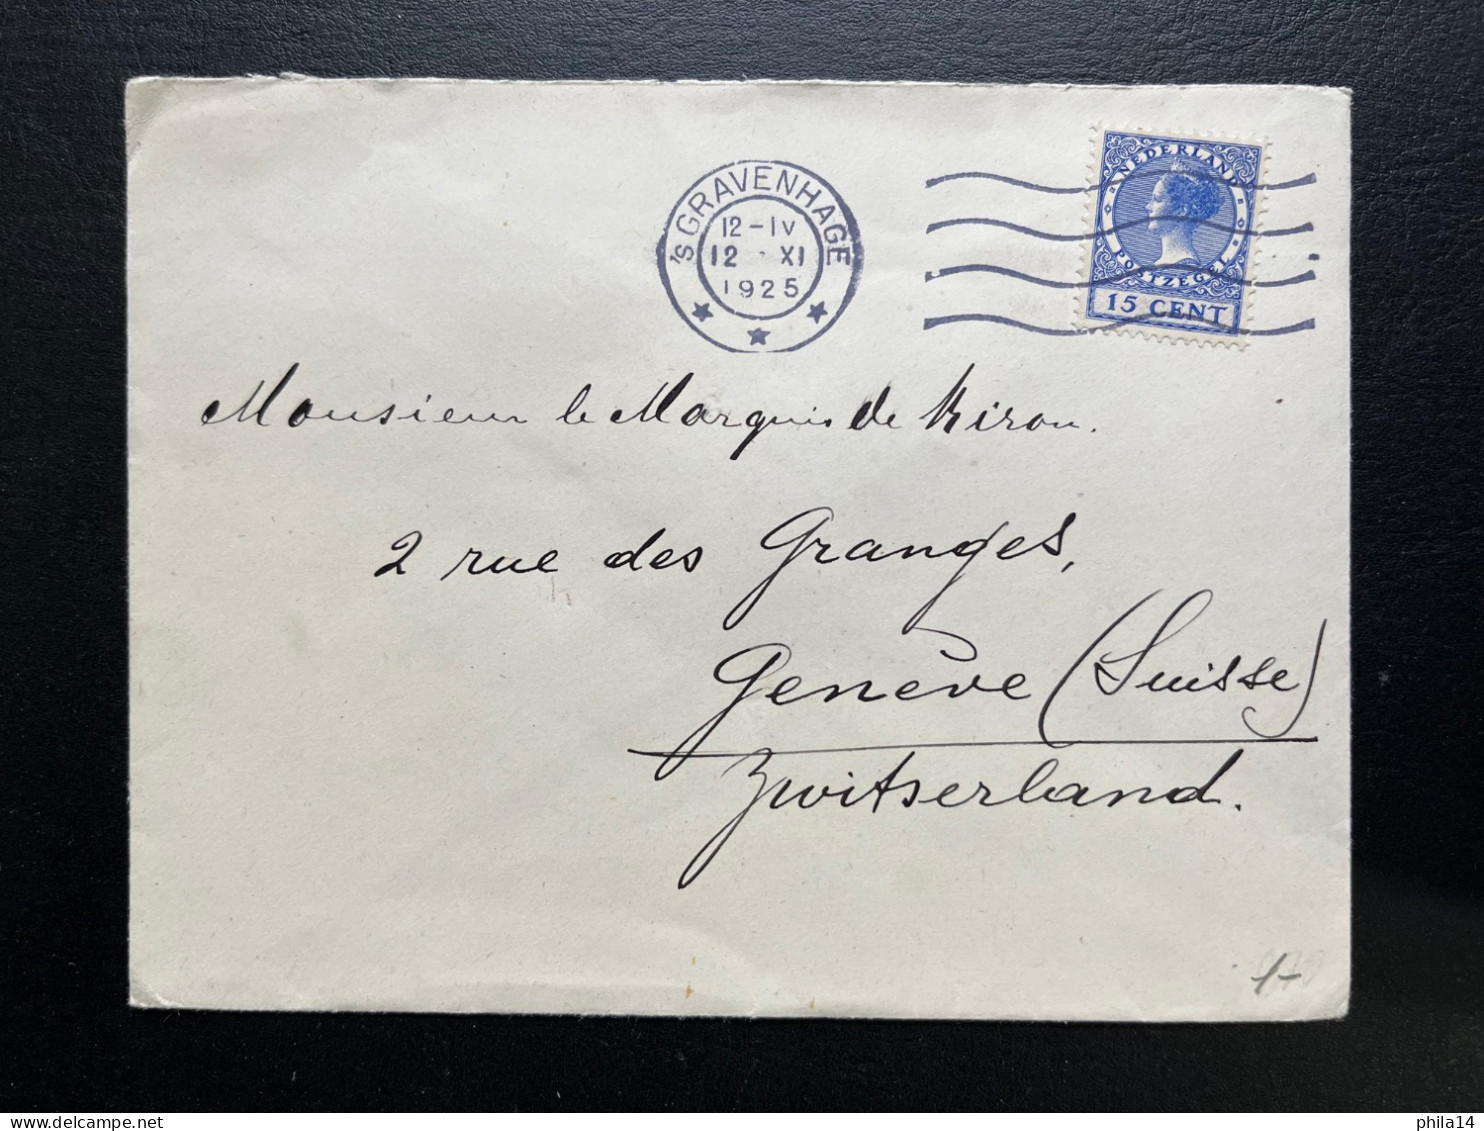 'S GRAVENHAGE
12-IV
12 XI
1925
NEDERLAND
POSTZEGEL
15 CENT
Monsieur le Marquis de Kirou.
2 rue des Granges,
Genève (Suisse)
Zwitserland.
1-
phila14